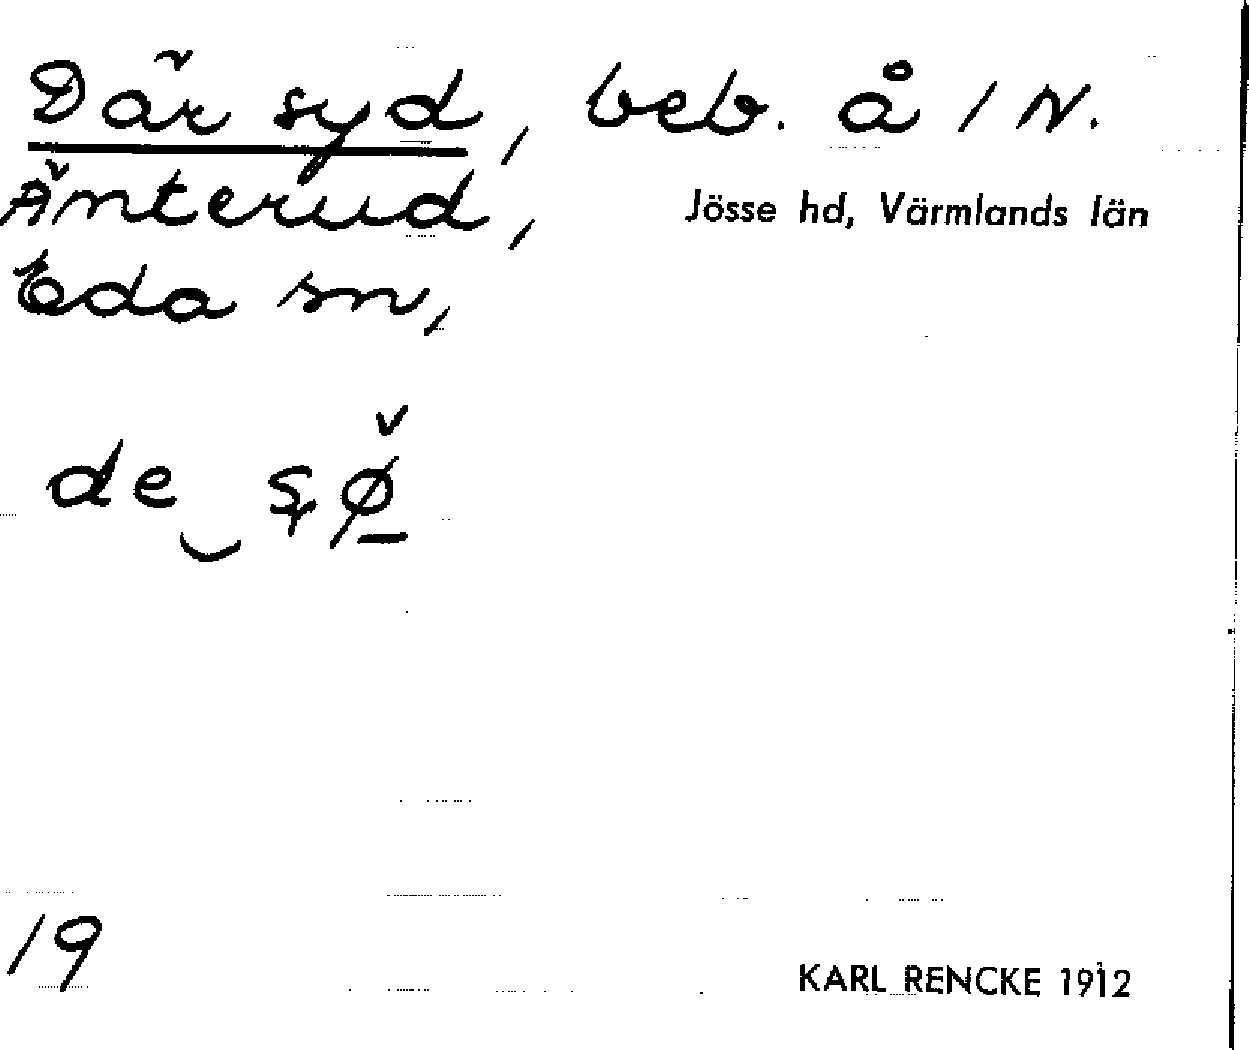 Där syd, beb. å / N.
Änterud,
Jösse hd, Värmlands län
Eda sn,
de‿ sø
19
KARL RENCKE 1912